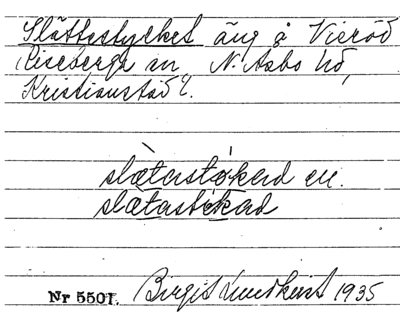 Slättastycket äng å Vieröd
Riseberga sn, N. Åsbo hd,
Kristianstad l.
slæ̀tastỳkad el.
slætastykad
Nr 5501. Birgit Lundkvist 1935